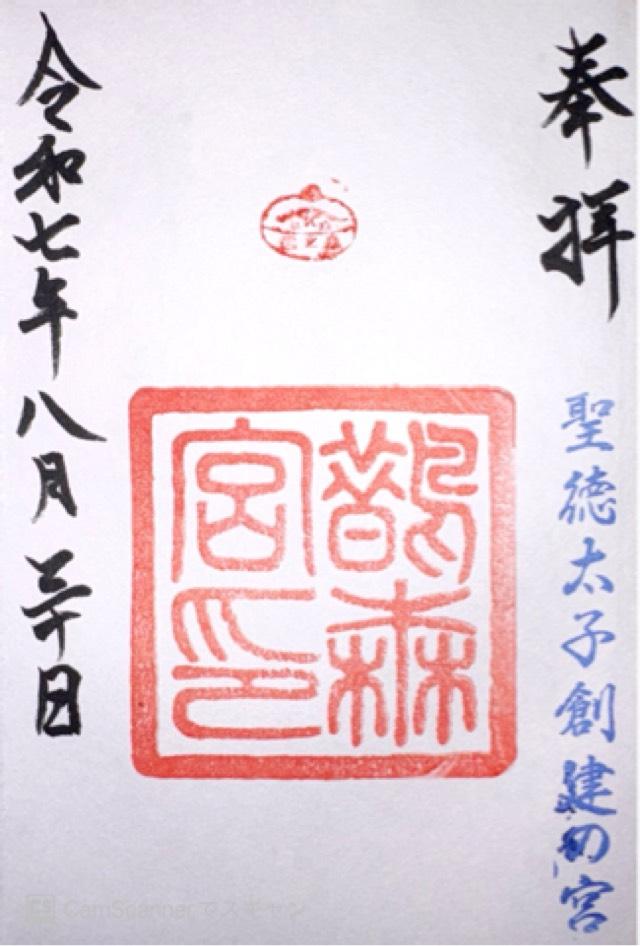 奉拝
聖徳太子創建の宮
鵲森
宮印
令和七年八月三十日
CS CamScannerでスキャン